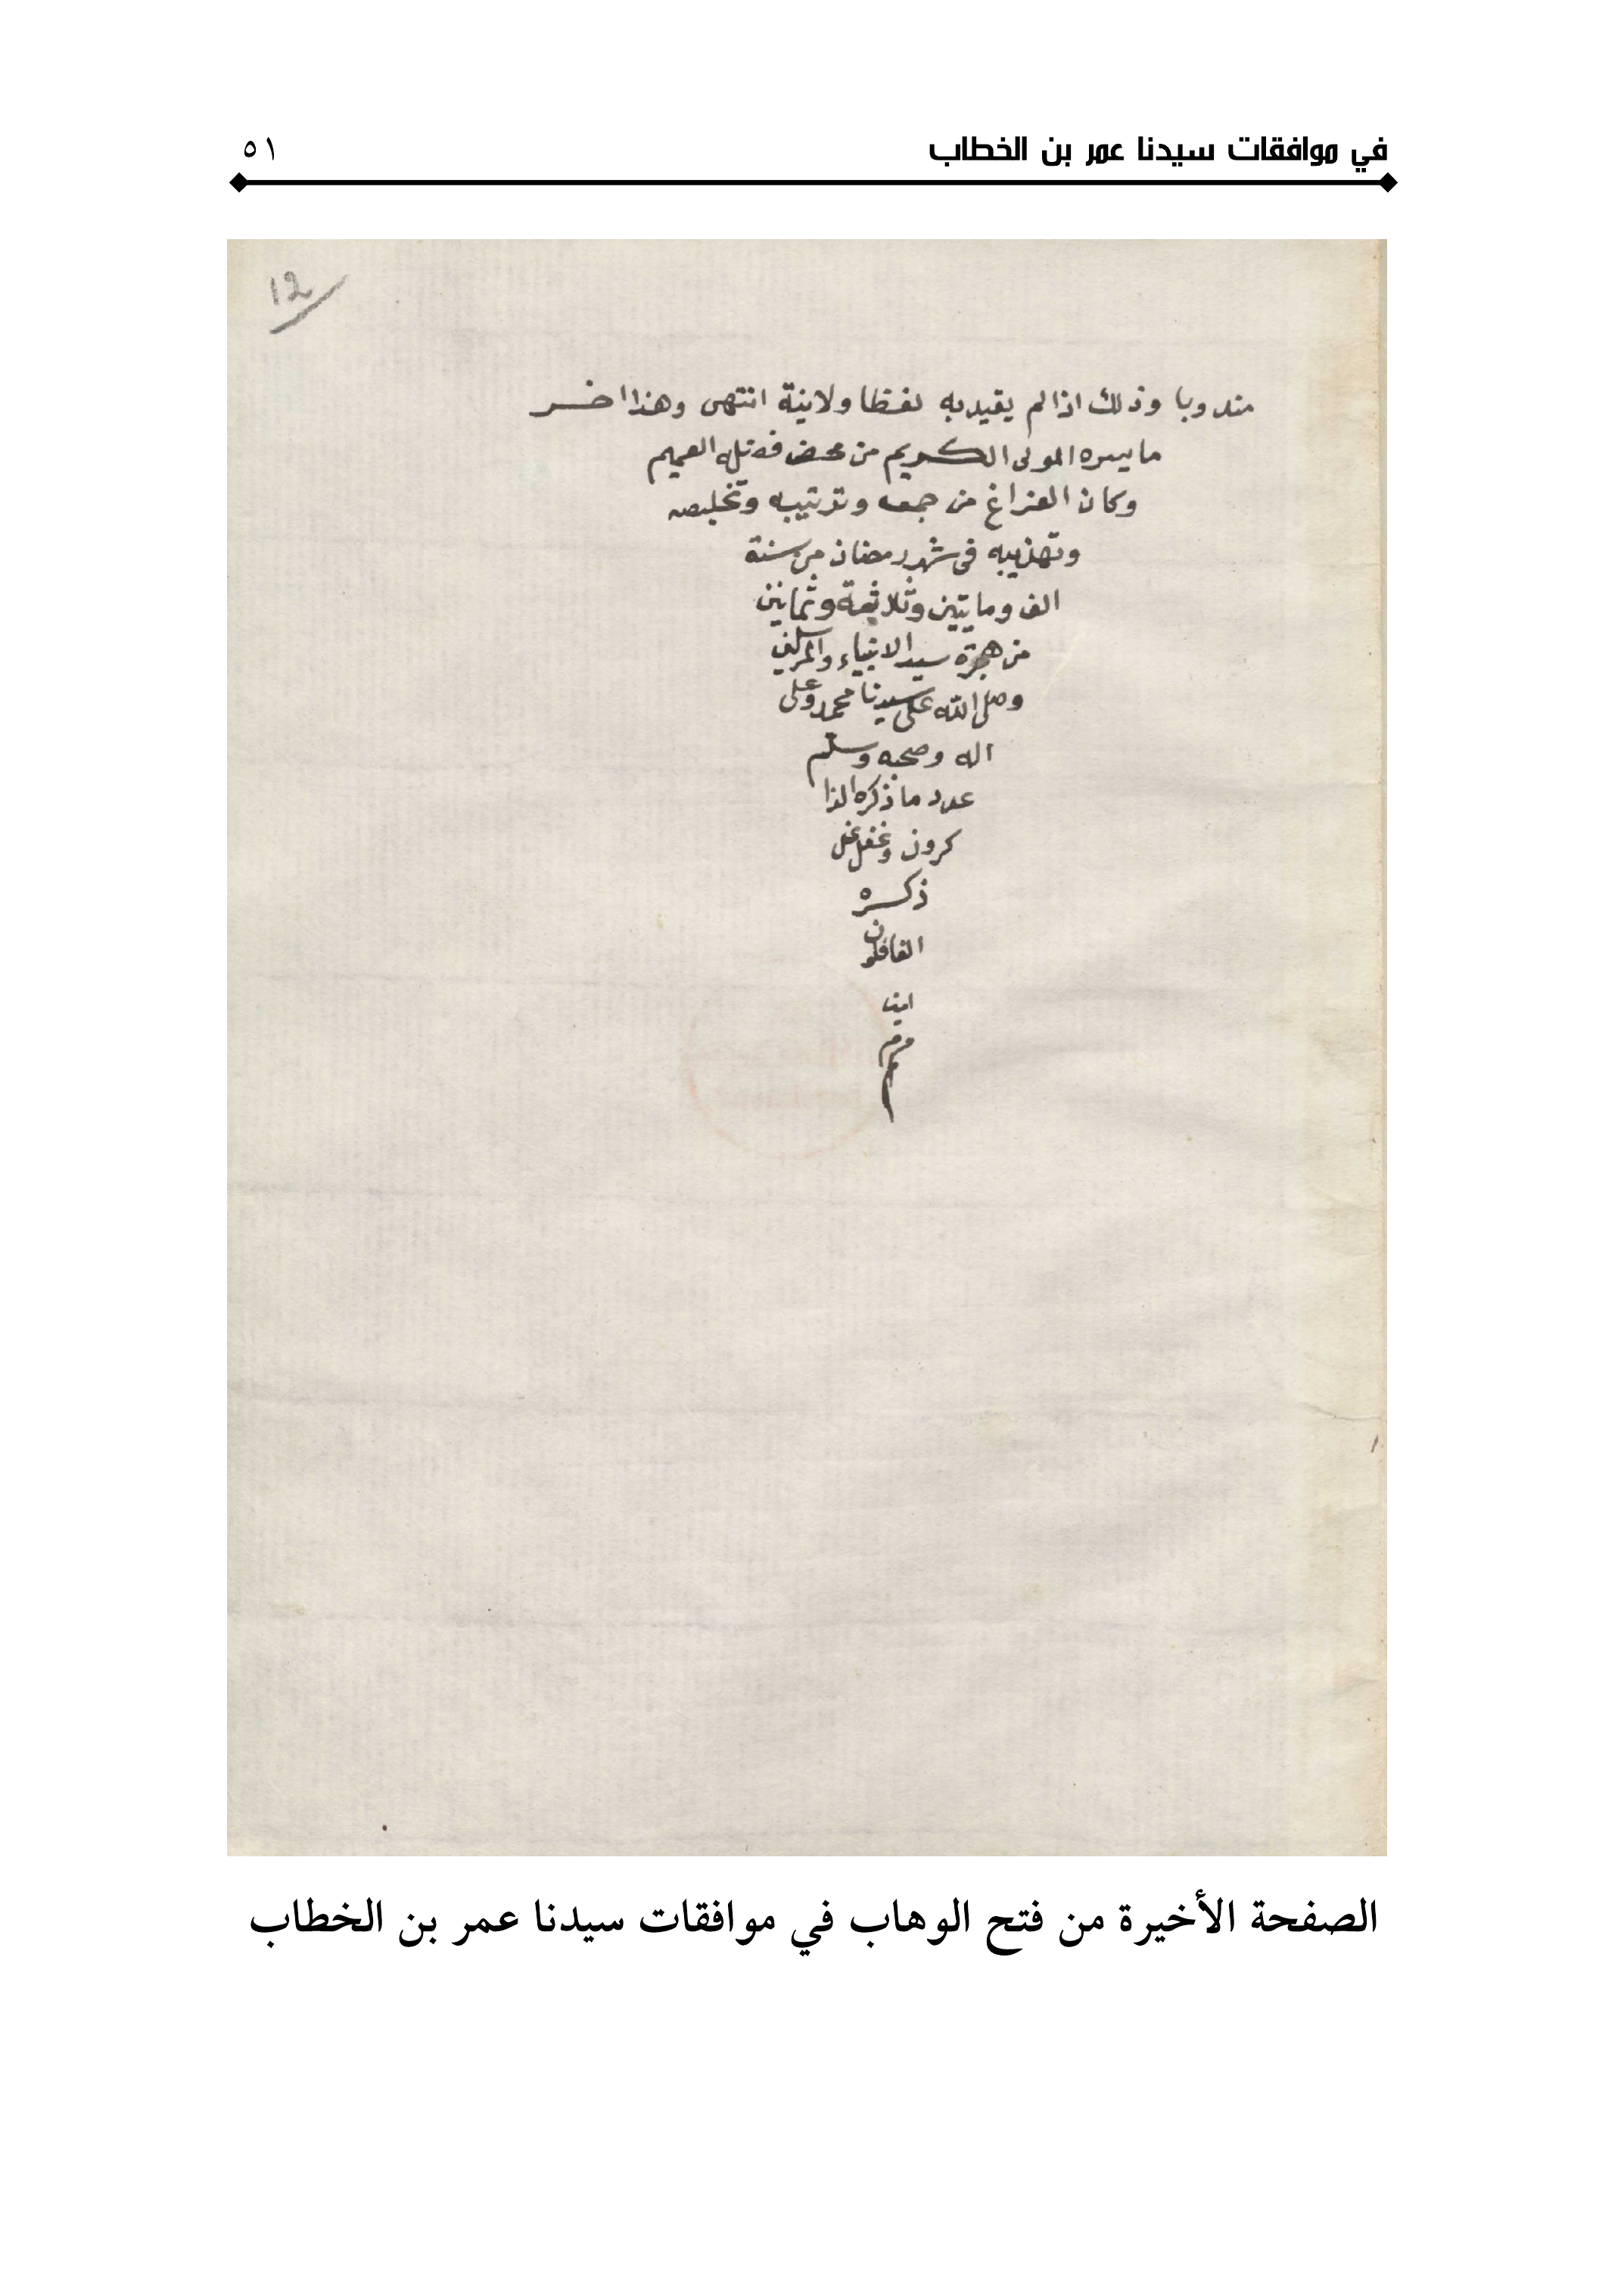 في موافقات سيدنا عمر بن الخطاب
٥١
12
مندوبا وذلك اذا لم يقيد به لفظا ولا نية انتهى وهذا اخر
ما يسره المولى الكريم من محض فضله العميم
وكان الفراغ من جمعه وترتيبه وتخليصه
وتهذيبه في شهر رمضان من سنة
الف ومايتين وثلاثة وثمانين
من هجرة سيد الانبياء والمرسلين
وصلى الله على سيدنا محمد وعلى
اله وصحبه وسلم
عدد ما ذكره الذا
كرون وغفل عن
ذكره
الغافلون
امين
الصفحة الأخيرة من فتح الوهاب في موافقات سيدنا عمر بن الخطاب